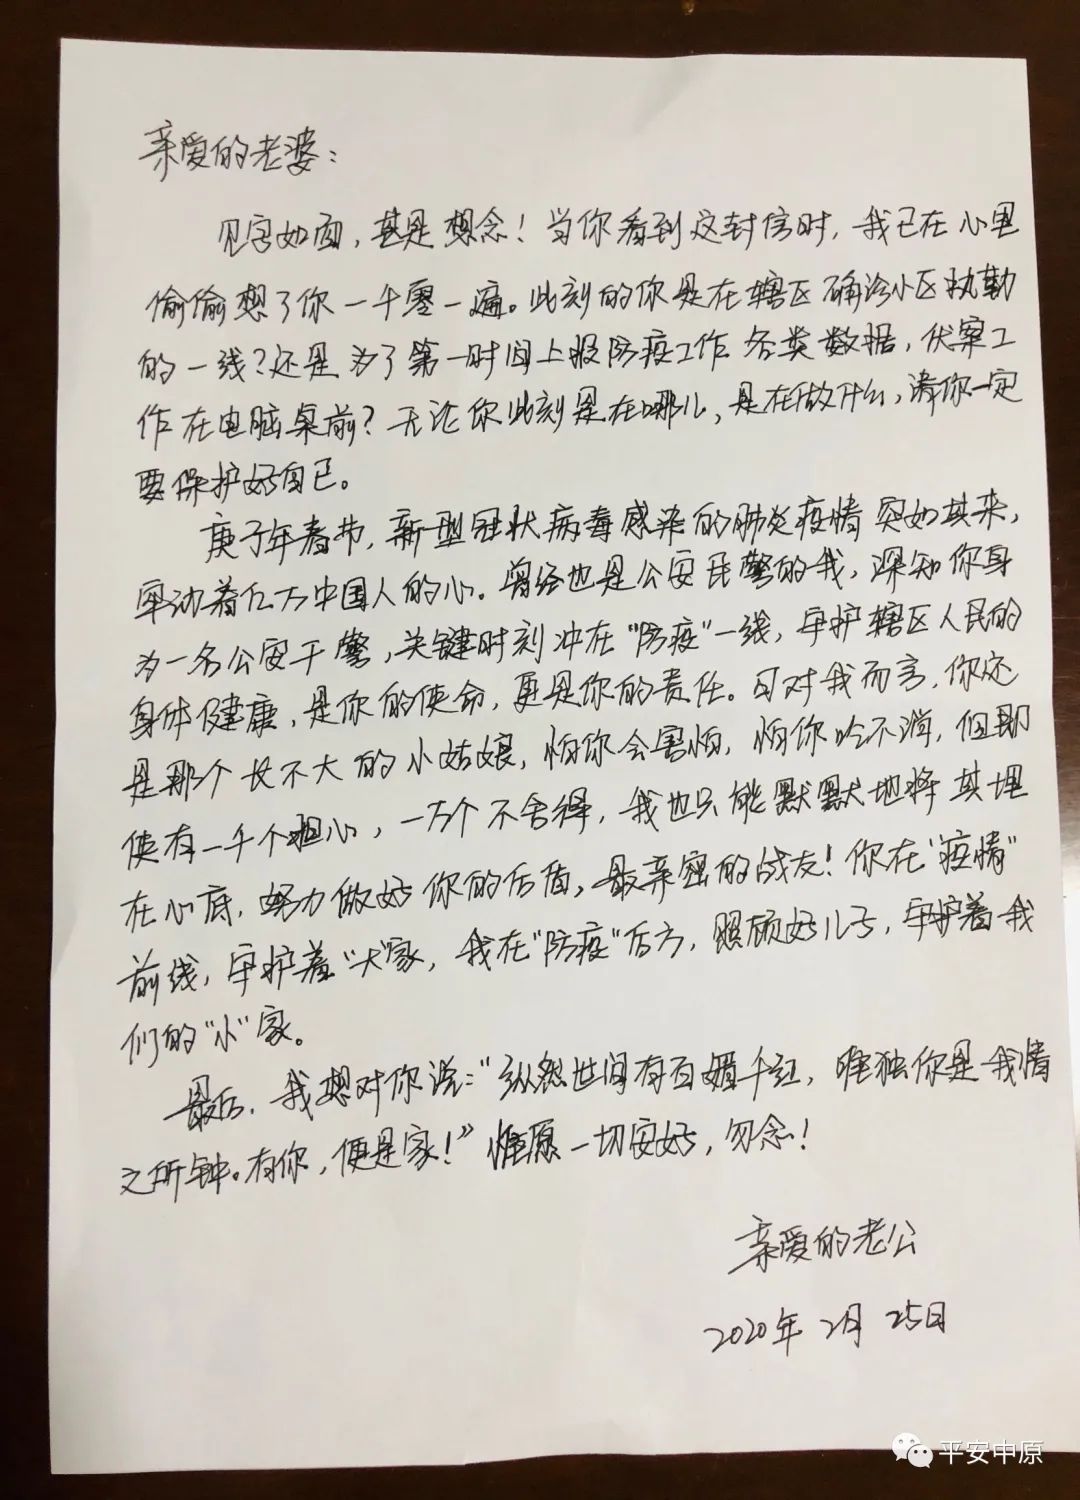 亲爱的老婆：
见字如面，甚是想念！当你看到这封信时，我已在心里
偷偷想了你一千零一遍。此刻的你是在辖区确诊小区执勤
的一线？还是为了第一时间上报防疫工作各类数据，伏案工
作在电脑桌前？无论你此刻是在哪儿，是在做什么，请你一定
要保护好自己。
庚子年春节，新型冠状病毒感染的肺炎疫情突如其来，
牵动着亿万中国人的心。曾经也是公安民警的我，深知你身
为一名公安干警，关键时刻冲在“防疫”一线，守护辖区人民的
身体健康，是你的使命，更是你的责任。可对我而言，你还
是那个长不大的小姑娘，怕你会害怕，怕你吃不消，但即
使有一千个担心，一万个不舍得，我也只能默默地将其埋
在心底，努力做好你的后盾，最亲密的战友！你在“疫情”
前线，守护着“大”家，我在“防疫”后方，照顾好儿子，守护着我
们的“小”家。
最后，我想对你说：“纵然世间有百媚千红，唯独你是我情
之所钟。有你，便是家！”惟愿一切安好，勿念！
亲爱的老公
2020年2月25日
平安中原